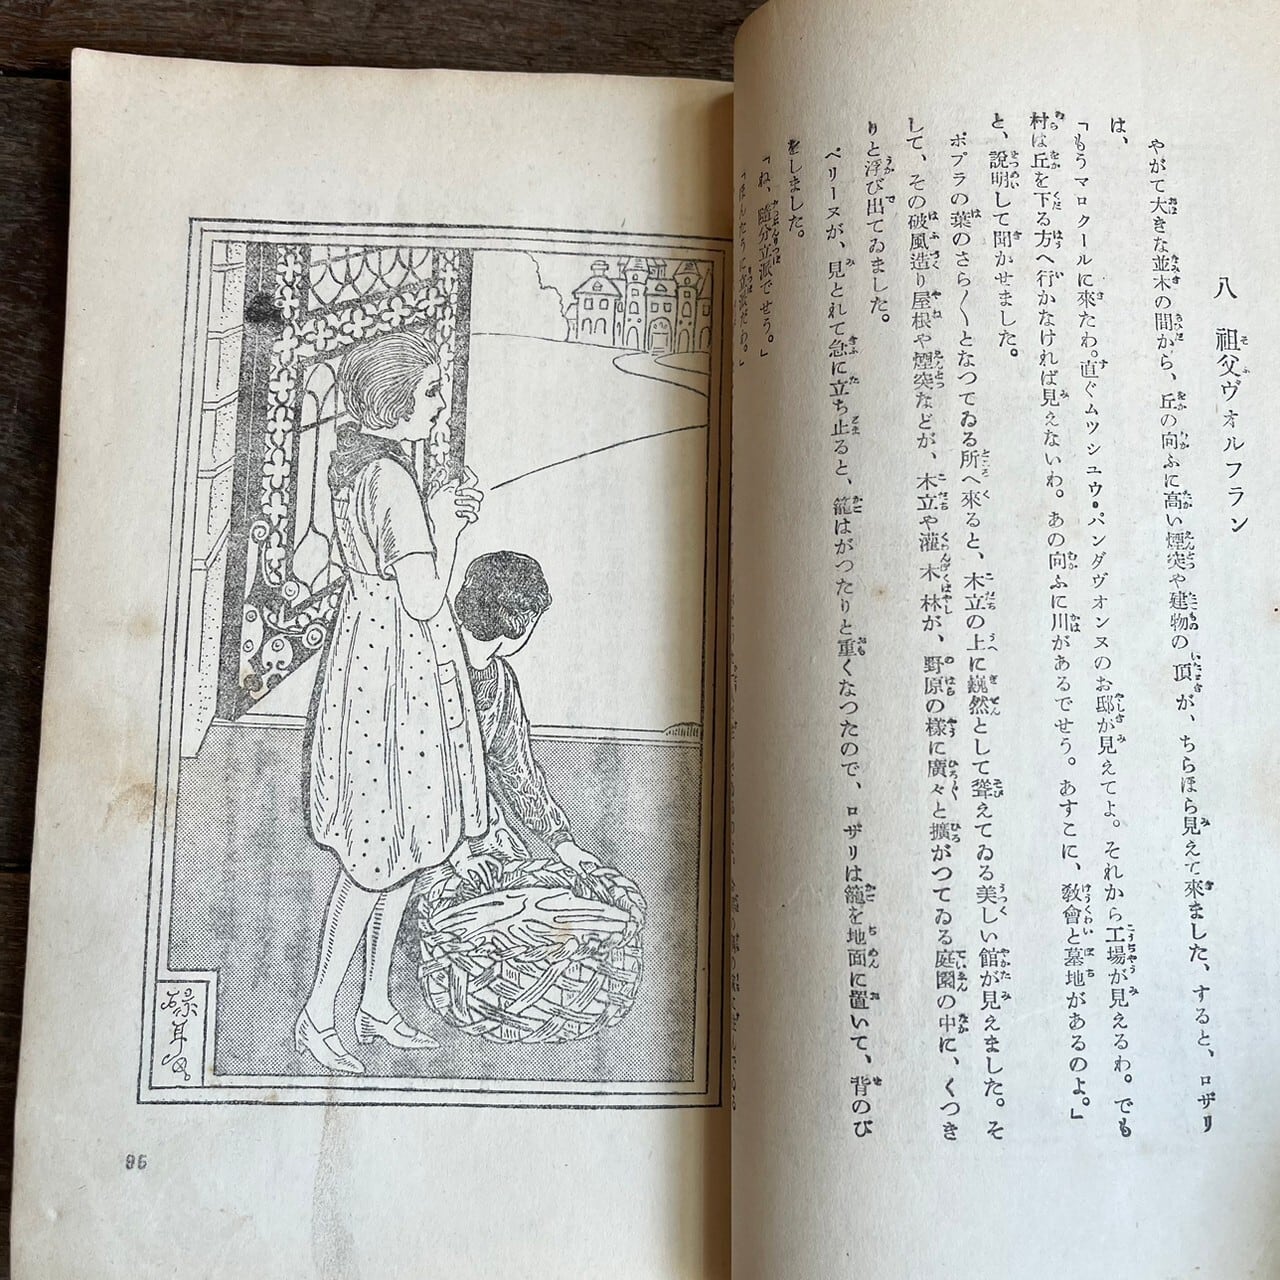 八　祖父ヴォルフラン
やがて大きな並木の間から、丘の向ふに高い煙突や建物の頂が、ちらほら見えて来ました、すると、ロザリ
は、
「もうマロクールに來たわ。直ぐムツシユウ・パンダヴォンヌのお邸が見えてよ。それから工場が見えるわ。でも
村は丘を下る方へ行かなければ見えないわ。あの向ふに川があるでせう。あすこに、教會と墓地があるのよ。」
と、説明して聞かせました。
ポプラの葉のさら〱となつてゐる所へ來ると、木立の上に巍然として聳えてゐる美しい館が見えました。そ
して、その破風造り屋根や煙突などが、木立や灌木林が、野原の樣に廣々と擴がつてゐる庭園の中に、くつき
りと浮び出てゐました。
ペリーヌが、見とれて急に立ち止ると、籠はがつたりと重くなつたので、ロザリは籠を地面に置いて、背のび
をしました。
「ね、隨分立派でせう。」
「ほんたうに立派だわ。」
95